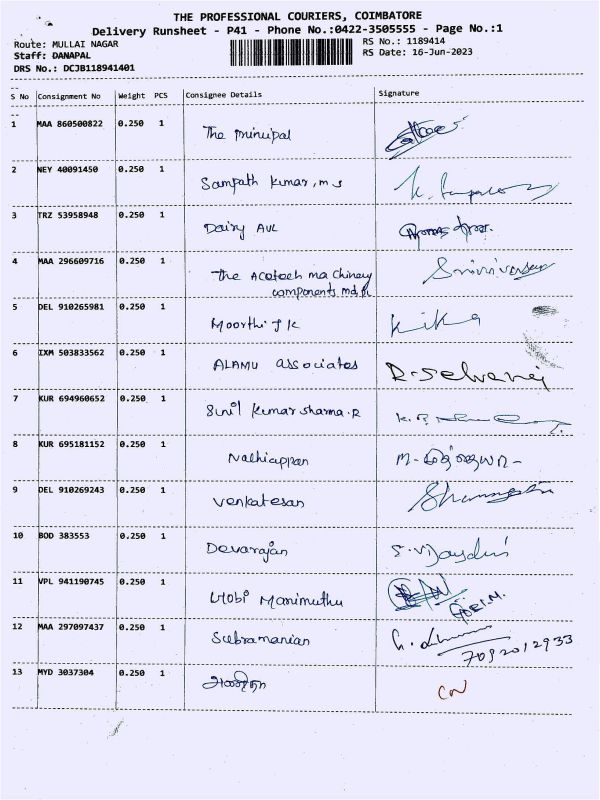 THE PROFESSIONAL COURIERS, COIMBATORE
Delivery Runsheet - P41 - Phone No.:0422-3505555 - Page No.:1
Route: MULLAI NAGAR RS No.: 1189414
Staff: DANAPAL RS Date: 16-Jun-2023
DRS No.: DCJB118941401
S No Consignment No Weight PCS Consignee Details Signature
1 MAA 860500822 0.250 1 The principal
2 NEY 40091450 0.250 1 Sampath Kumar, m s
3 TRZ 53958948 0.250 1 Dairy AVL
4 MAA 296609716 0.250 1 The Acotech machinery Srinivasan
components
5 DEL 910265981 0.250 1 Moorthi J K
6 IXM 503833562 0.250 1 ALAMU associates R. Selvaraj
7 KUR 694960652 0.250 1 Sunil Kumar sharma.R
8 KUR 695181152 0.250 1 Nachiappan
9 DEL 910269243 0.250 1 Venkatesan
10 BOD 383553 0.250 1 Devarajan
11 VPL 941190745 0.250 1 Gobi Manimuthu
GOBI.M.
12 MAA 297097437 0.250 1 Subramanian
7092012933
13 MYD 3037304 0.250 1